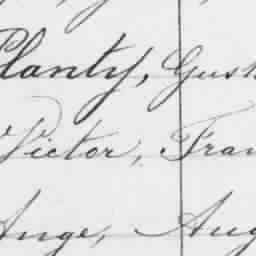 Planty, Gust
Victor, Fran
Ange, Aug